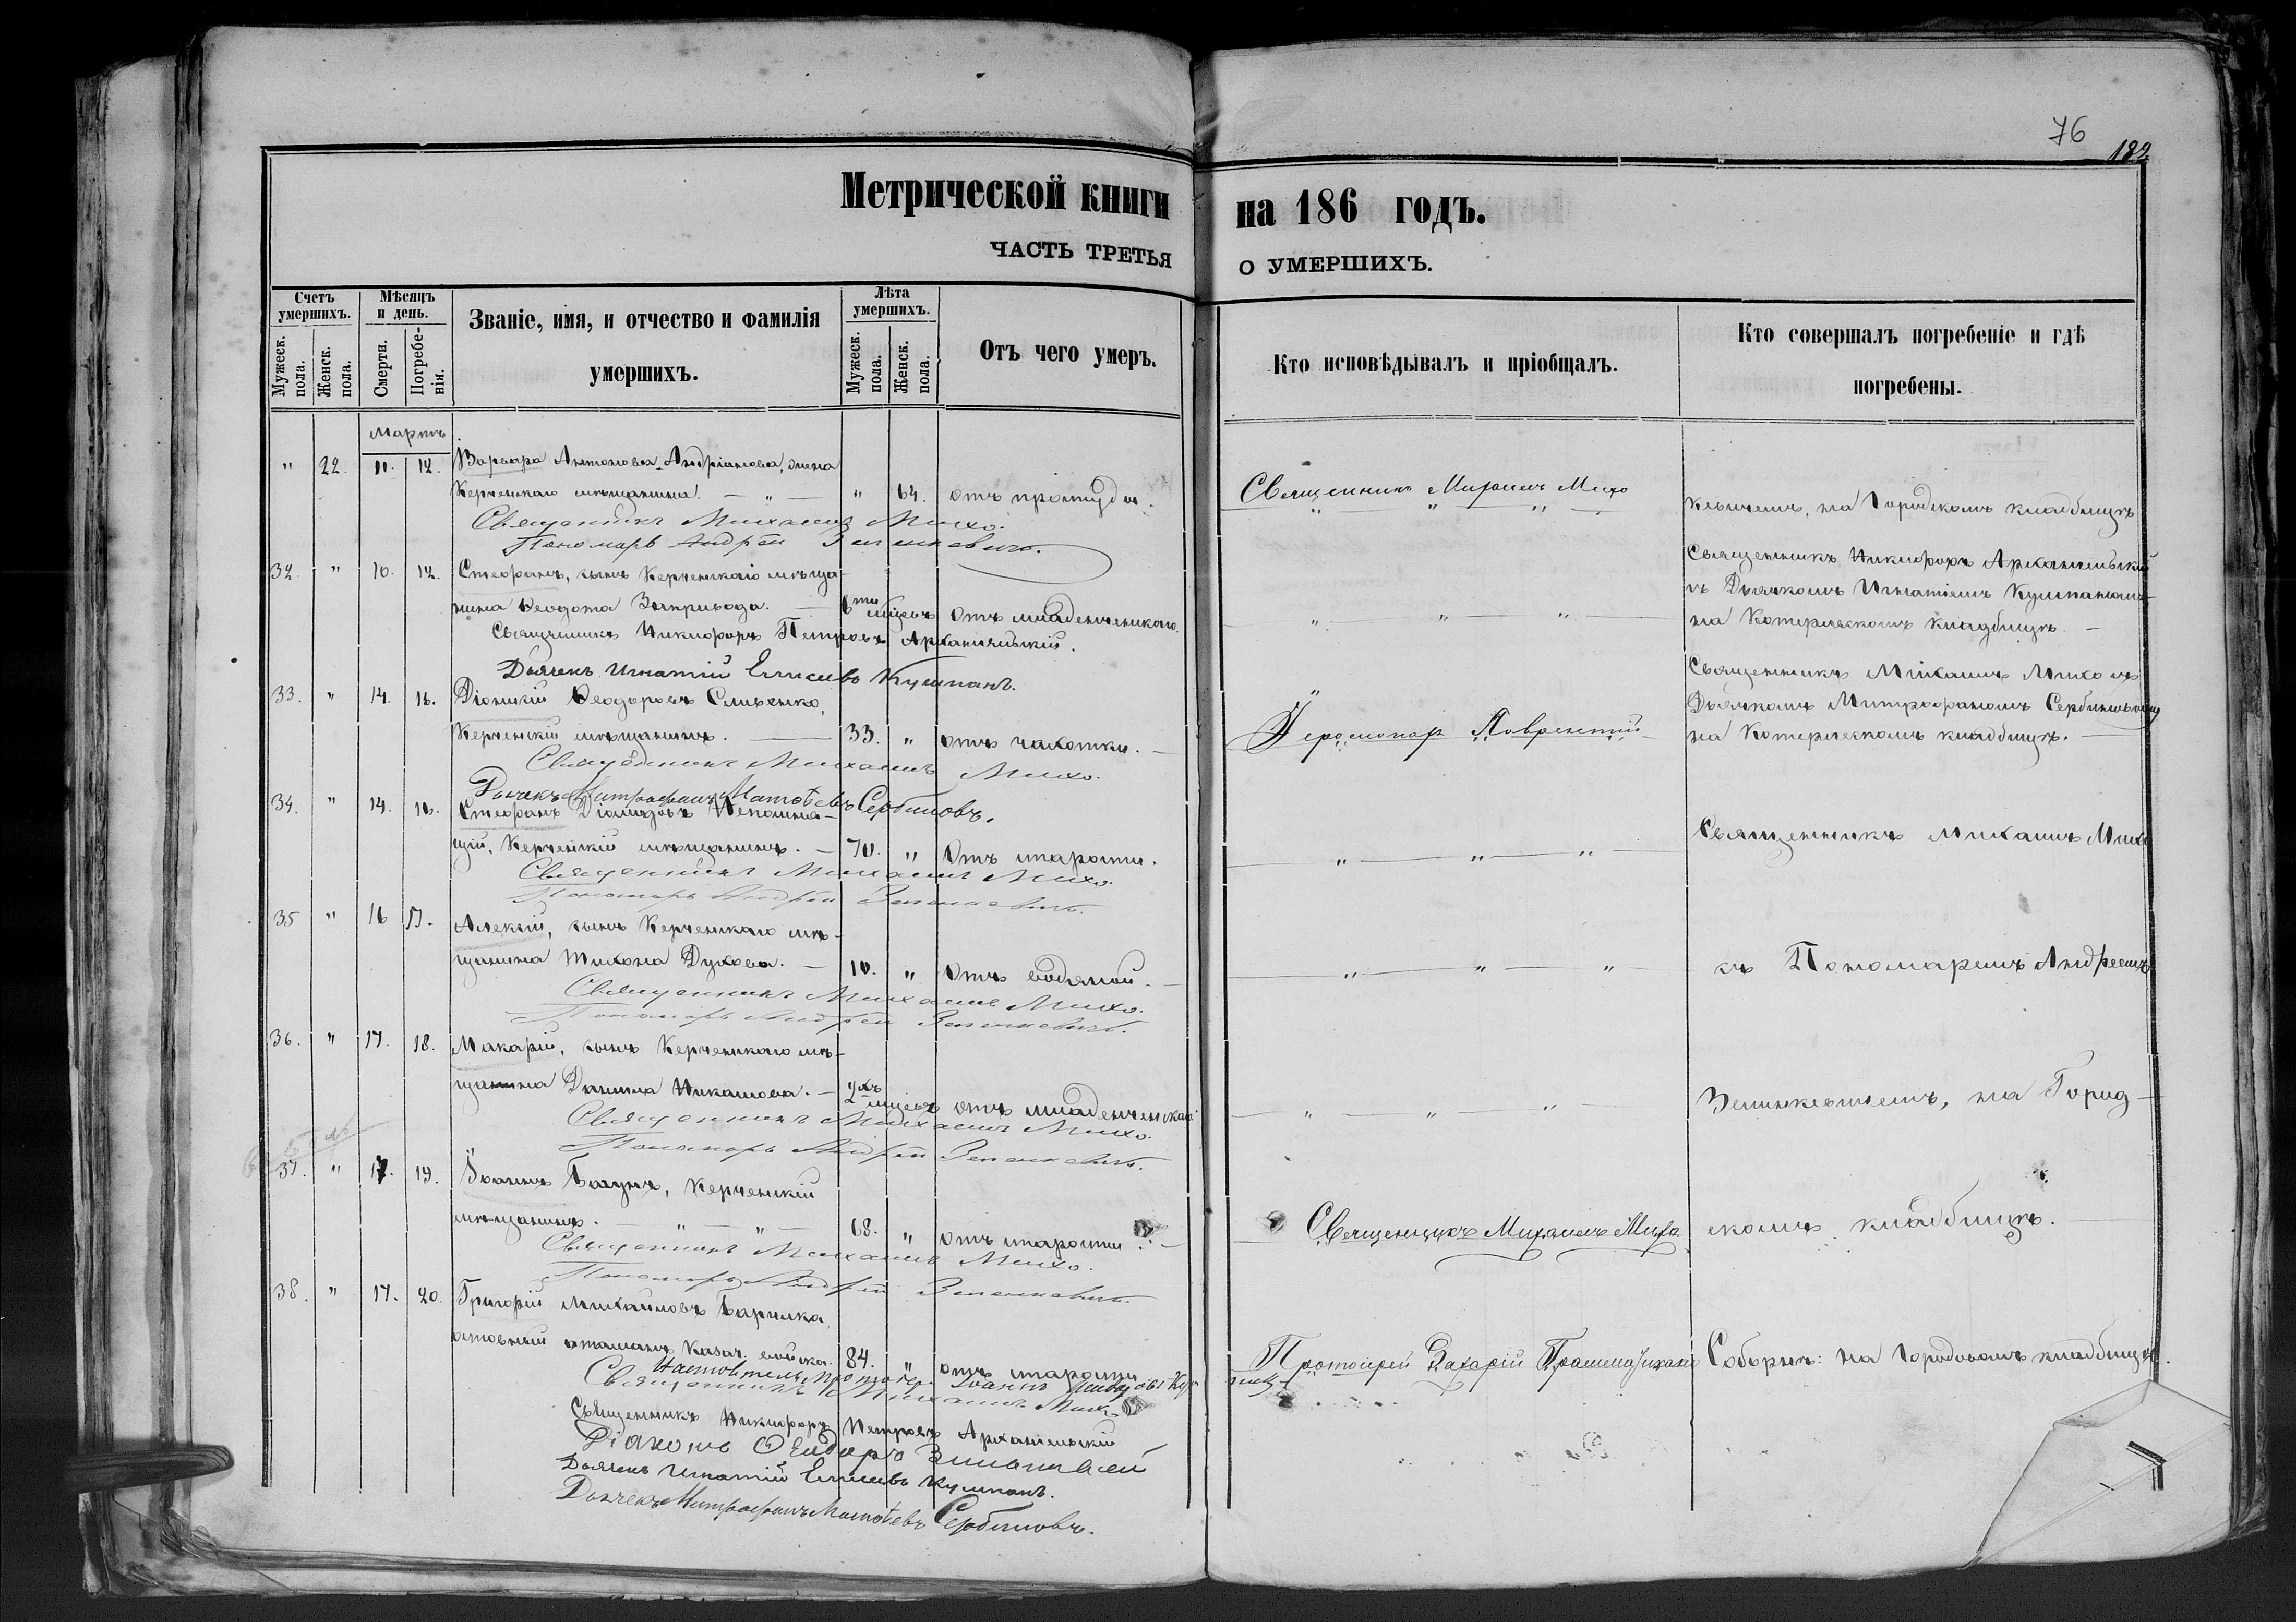 76
182
Метрической книги на 186 годъ.
ЧАСТЬ ТРЕТЬЯ О УМЕРШИХЪ.
Счетъ умершихъ.
Мужеск. пола.
Женск. пола.
Мѣсяцъ и день.
Смерти.
Погребенія.
Званіе, имя, и отчество и фамилія
умершихъ.
Лѣта умершихъ.
Мужеск. пола.
Женск. пола.
Отъ чего умеръ.
Кто исповѣдывалъ и пріобщалъ.
Кто совершалъ погребеніе и гдѣ
погребены.
Мартъ
" 22. 11. 12. Варвара Антонова Андріанова, жена
Керченскаго мѣщанина. — " — " 64. отъ простуды.
Священникъ Михаилъ Михо
кевичемъ, на Городскомъ кладбищѣ
Священникъ Михаилъ Михо.
Пономарь Андрей Зелинкевичъ.
32. " 10. 12. Стефанъ, сынъ Керченскаго мѣща-
нина Ѳеодота . — 6ти мѣсяцъ отъ младенческаго.
Священникъ Никифоръ Архангельскій
съ Дьячкомъ Игнатіемъ
на кладбищѣ. —
Священникъ Никифоръ Петровъ Архангельскій.
Дьячекъ Игнатій Елисеевъ
33. " 14. 16. Діонисій Ѳеодоровъ Сливенко,
Керченскій мѣщанинъ. — 33. " отъ чахотки. —
Іеромонахъ Лаврентій
Священникъ Михаилъ Михо съ
Дьячкомъ Митрофаномъ
на кладбищѣ. —
Священникъ Михаилъ Михо.
Дьячекъ Митрофанъ Матвѣевъ Сербиновъ.
34. " 14. 16. Стефанъ Діомидовъ Непомня-
щій, Керченскій мѣщанинъ. — 70. " Отъ старости.
Священникъ Михаилъ Михо
Священникъ Михаилъ Михо.
Пономарь Андрей Зелинкевичъ.
35 " 16 17. Алексій, сынъ Керченскаго мѣ-
щанина Тихона Духова. — 10. " Отъ водяной. —
съ Пономаремъ Андреемъ
Священникъ Михаилъ Михо.
Пономарь Андрей Зелинкевичъ.
36. " 17. 18. Макарій, сынъ Керченскаго мѣ-
щанина Даніила . — 2хъ мѣсяцъ отъ младенческаго
Зелинкевичемъ, на Город-
Священникъ Михаилъ Михо.
Пономарь Андрей Зелинкевичъ.
37. " 17. 19. Іоаннъ , Керченскій
мѣщанинъ. — " — " — 68. " отъ старости. —
Священникъ Михаилъ Михо
скомъ кладбищѣ.
Священникъ Михаилъ Михо.
Пономарь Андрей Зелинкевичъ.
38. " 17. 20. Григорій Михайловъ Барилко,
атаманъ Казач. войска. 84. " отъ старости
Протоіерей Захарій
Соборнѣ: на Городовомъ кладбищѣ.
Священникъ Михаилъ Михо
Священникъ Никифоръ Петровъ Архангельскій
Діаконъ
Дьячекъ Игнатій Елисеевъ
Дьячекъ Митрофанъ Матвѣевъ Сербиновъ.